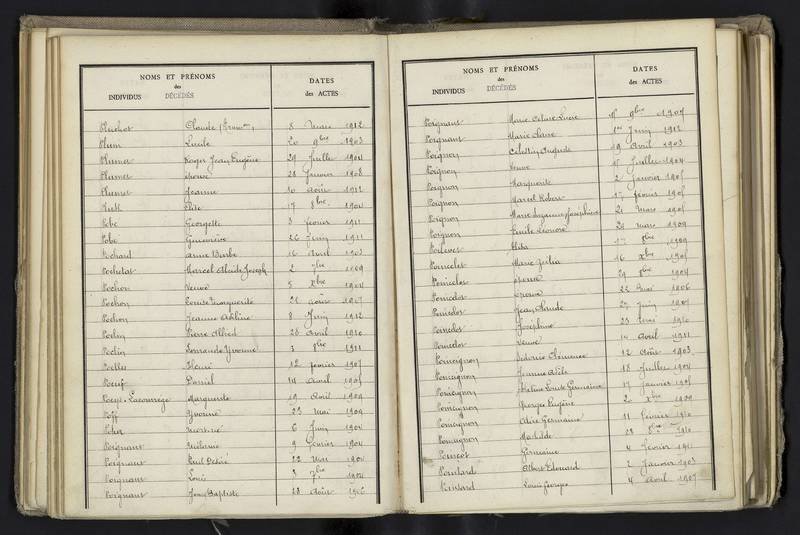 NOMS ET PRÉNOMS
des
INDIVIDUS DÉCÉDÉS
DATES
des ACTES
Pluchot Claude 8 Mars 1912
Plum Lucile 20 9bre 1903
Plumer Roger Jean Eugène 29 Juillet 1904
Plumer 28 Janvier 1908
Plumet Jeanne 10 Août 1912
17 8bre 1904
Pobé Georgette 8 février 1911
Pobé Geneviève 26 Juin 1911
Pochard Anne Barbe 16 Avril 1903
Pochetat Marcel Alcide Joseph 2 1909
Pochon Veuve 5 Xbre 1904
Pochon Louise Marguerite 21 août 1907
Pochon Jeanne Adéline 8 Juin 1912
Poclin Pierre Alfred 28 Avril 1910
Poclin Fernande Yvonne 3 1911
Poelles Henri 12 février 1907
Poeuf Daniel 14 Avril 1905
Marguerite 19 Avril 1909
Poff Yvonne 23 Mai 1909
6 Juin 1904
Poignant Mélanie 9 Février 1904
Poignant Paul Désiré 22 Mars 1904
Poignant Louis 3 7bre 1904
Poignant Jean Baptiste 23 Août 1906
NOMS ET PRÉNOMS
des
INDIVIDUS DÉCÉDÉS
DATES
des ACTES
Poignant Marie Celina Lucie 9bre 1907
Poignant Marie Claire 1er Juin 1912
Poignon Célestin Auguste 19 Avril 1903
Poignon Veuve Juillet 1904
Poignon Marguerite 2 Janvier 1905
Poignon Marcel Robert 17 février 1905
Poignon Marie Suzanne Joséphine 21 Mars 1905
Poignon Emile Léonore 24 Mars 1909
17 8bre 1909
Poincelet Marie Julia 16 Xbre 1905
Poincelet 29 8bre 1904
Poincelot 22 Mai 1906
Poincelot Jean Claude 27 Juin 1907
Poincelot Joséphine 23 Mai 1910
Poincelot Veuve 14 Avril 1911
Poincignon Clémence 12 Août 1903
Poincignon Jeanne Adèle 18 Juillet 1904
Poincignon Hélène Louise Germaine 17 Janvier 1905
Poincignon Georges Eugène 2 Xbre 1909
Poincignon Alice Germaine 11 février 1910
Poincignon Mathilde 28 8bre 1910
Poincot Germaine 4 février 1911
Albert Edouard 2 Janvier 1903
Louis Georges 4 Avril 1907